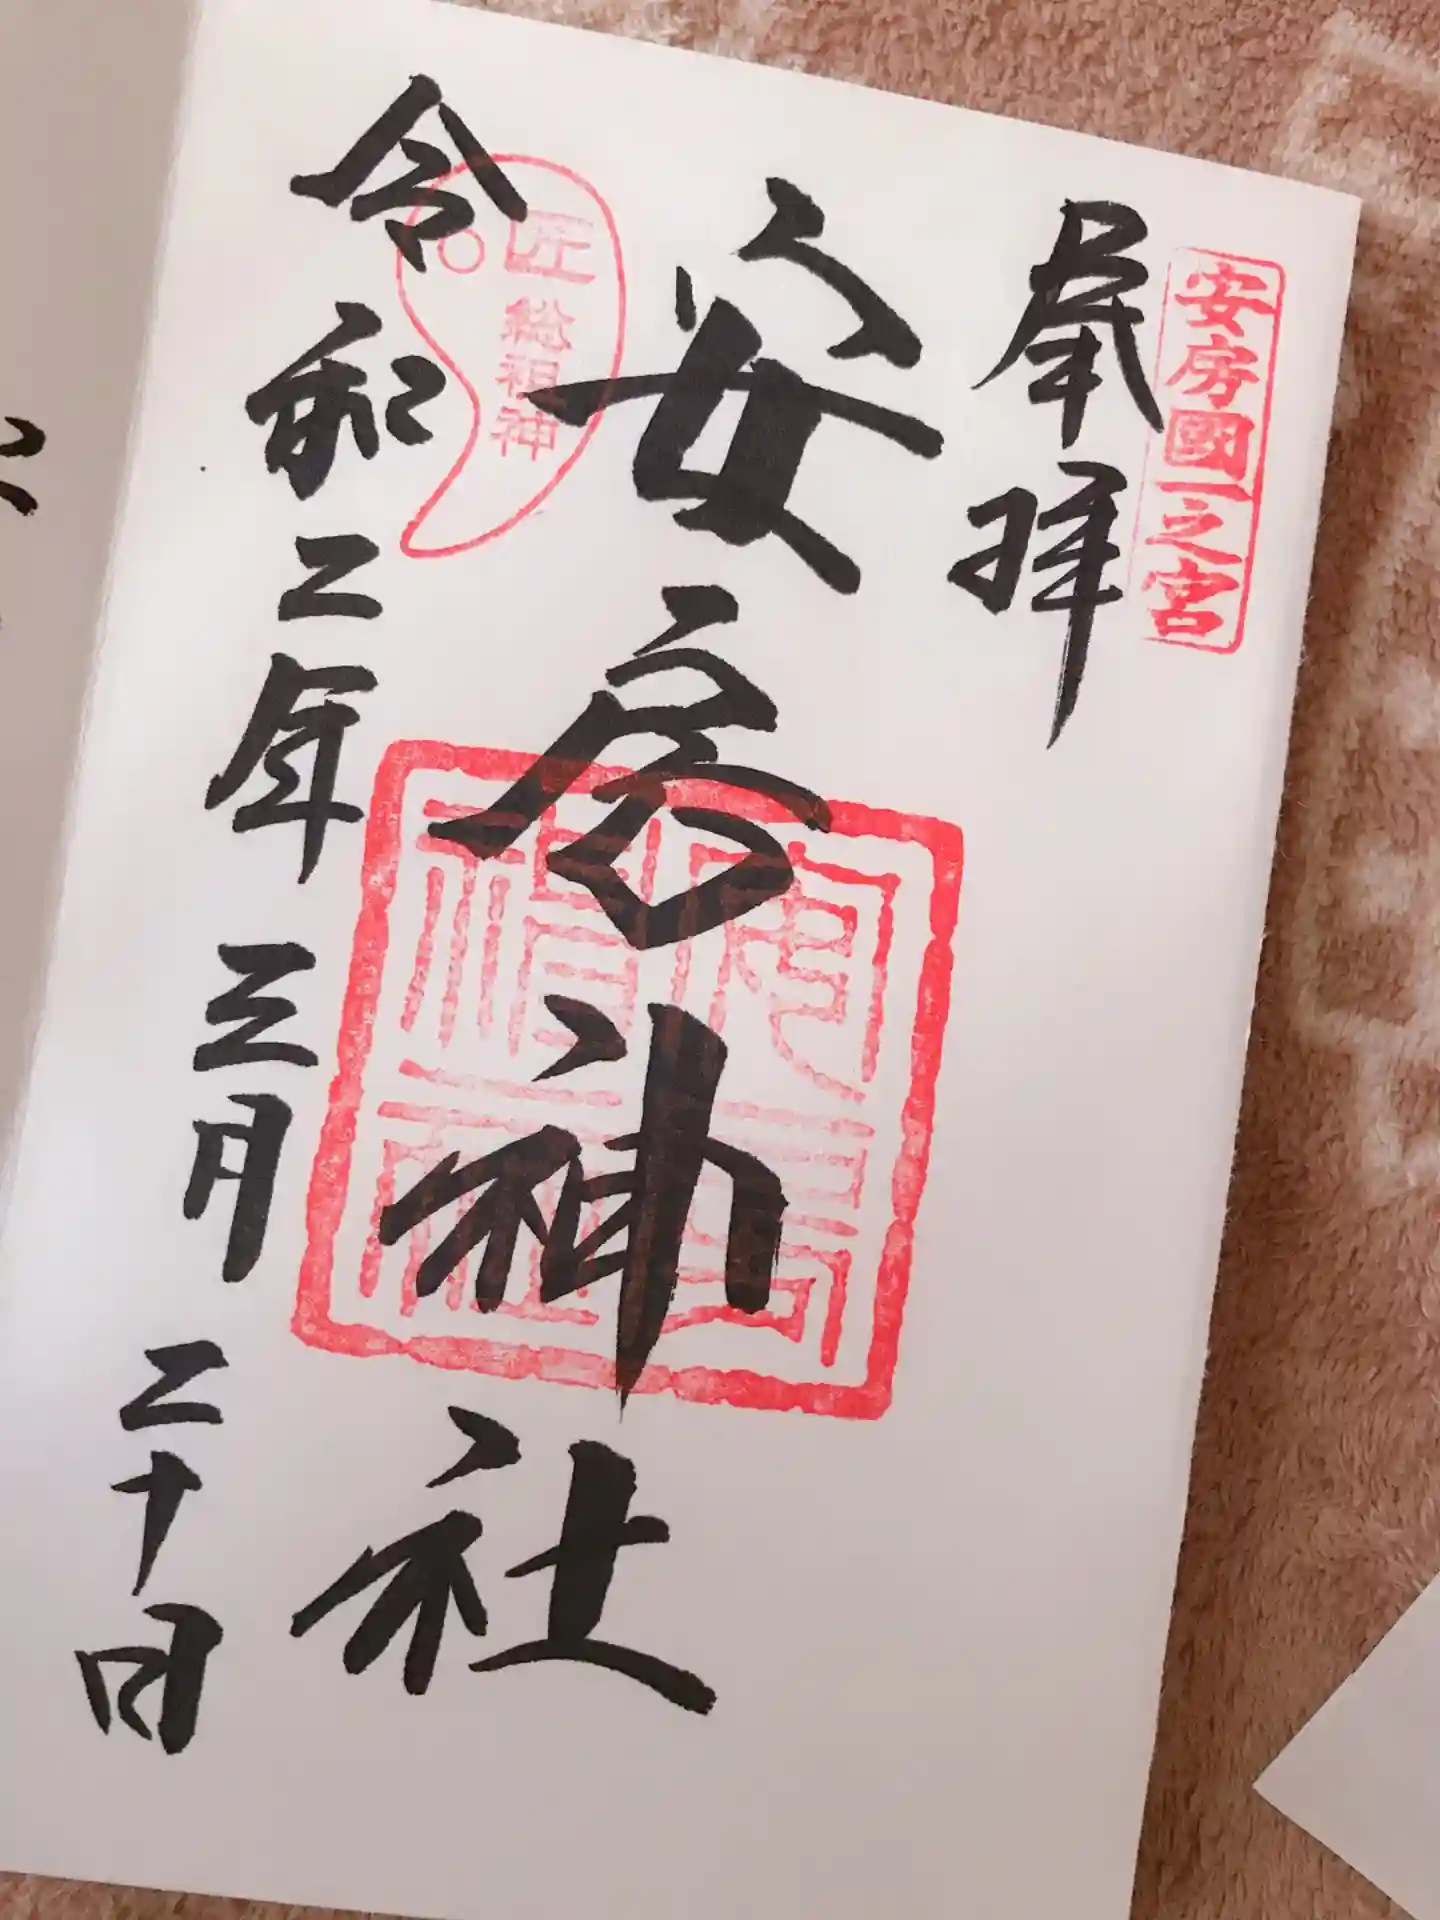 安房國一之宮
奉拝
安房神社
匠
総祖神
令和二年三月二十日